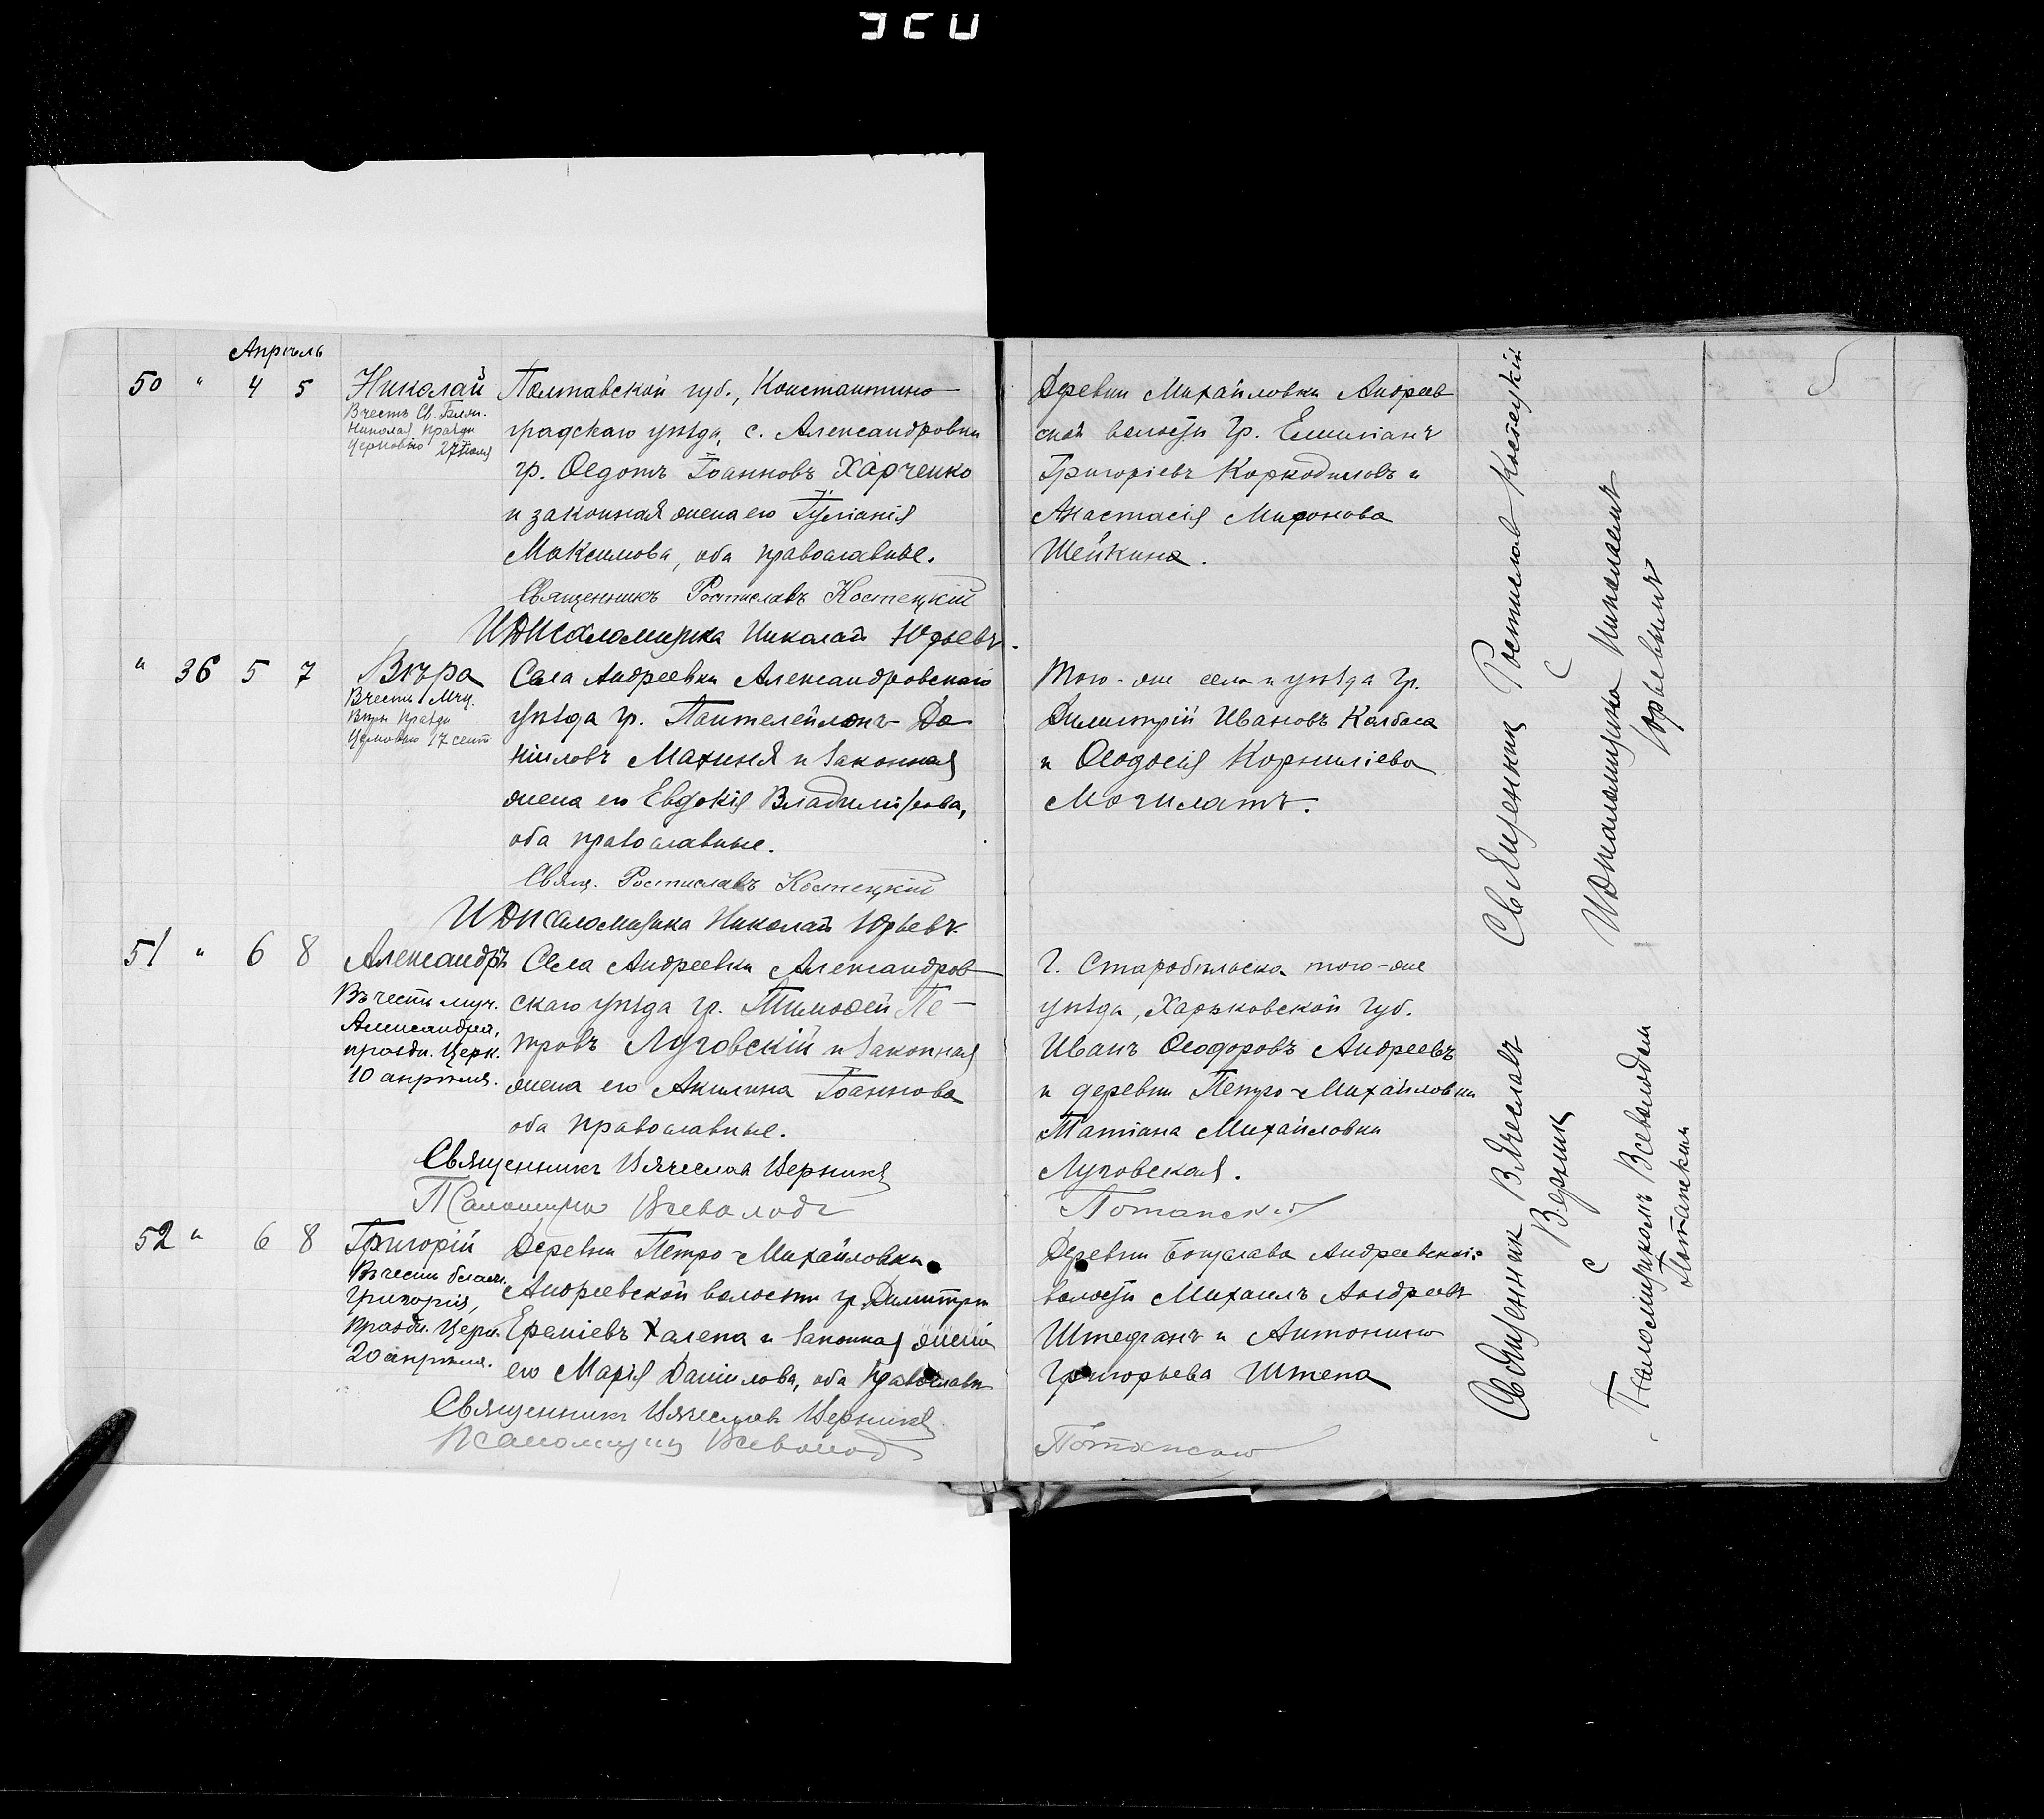 Апрѣль
50 " 4 5 Николай
Въ честь Св. Блж.
Николая празд.
Церковію 27 Іюля
Полтавской губ., Константино-
градскаго уѣзда, с. Александровки
гр. Ѳедотъ Іоанновъ Харченко
и законная жена его Іуліанія
Максимова, оба православные.
Священникъ Ростиславъ Костецкій
И. д. псаломщика Николай Юрьевъ.
Деревни Михайловки Андреев-
ской волости гр. Емиліанъ
Григоріевъ Коркодиловъ и
Анастасія Миронова
Шейкина.
Священник Ростислав Костецкій
с
И. д. псаломщика Николаемъ
Юрьевымъ
" 36 5 7 Вѣра
Въ честь Мчц.
Вѣры празд.
Церковью 17 сент
Села Андреевки Александровскаго
уѣзда гр. Пантелеймонъ Да-
ніиловъ Махиня и законная
жена его Евдокія Владимірова,
оба православные.
Свящ. Ростиславъ Костецкій
И. д. псаломщика Николай Юрьевъ.
Того-же села и уѣзда гр.
Димитрій Ивановъ Калбаса
и Ѳеодосія Корниліева
Могилатъ.
51 " 6 8 Александръ
Въ честь муч.
Александра,
празд. Церк.
10 апрѣля.
Села Андреевки Александров-
скаго уѣзда гр. Тимоѳей Пе-
тровъ Луговскій и законная
жена его Акилина Іоаннова
оба православные.
Священникъ Вячеслав Верникъ
Псаломщикъ Всеволодъ
Г. Старобѣльска того-же
уѣзда, Харьковской губ.
Иванъ Ѳеодоровъ Андреевъ
и деревни Петро-Михайловки
Татіана Михайловна
Луговская.
Потапскій
Священник Вячеслав
Верник
с
Псаломщикомъ Всеволодом
Потапским
52 " 6 8 Григорій
Въ честь блаж.
Григорія,
празд. Церк.
20 апрѣля.
Деревни Петро-Михайловки
Андреевской волости гр. Димитрій
Халепа и законная жена
его Марія Даніилова, оба православн
Священникъ Вячеслав Верникъ
Псаломщикъ Всеволод
Деревни Богуслава Андреевской
волости Михаилъ Андреевъ
Штефанъ и Антонина
Григорьева Штепа
Потапский